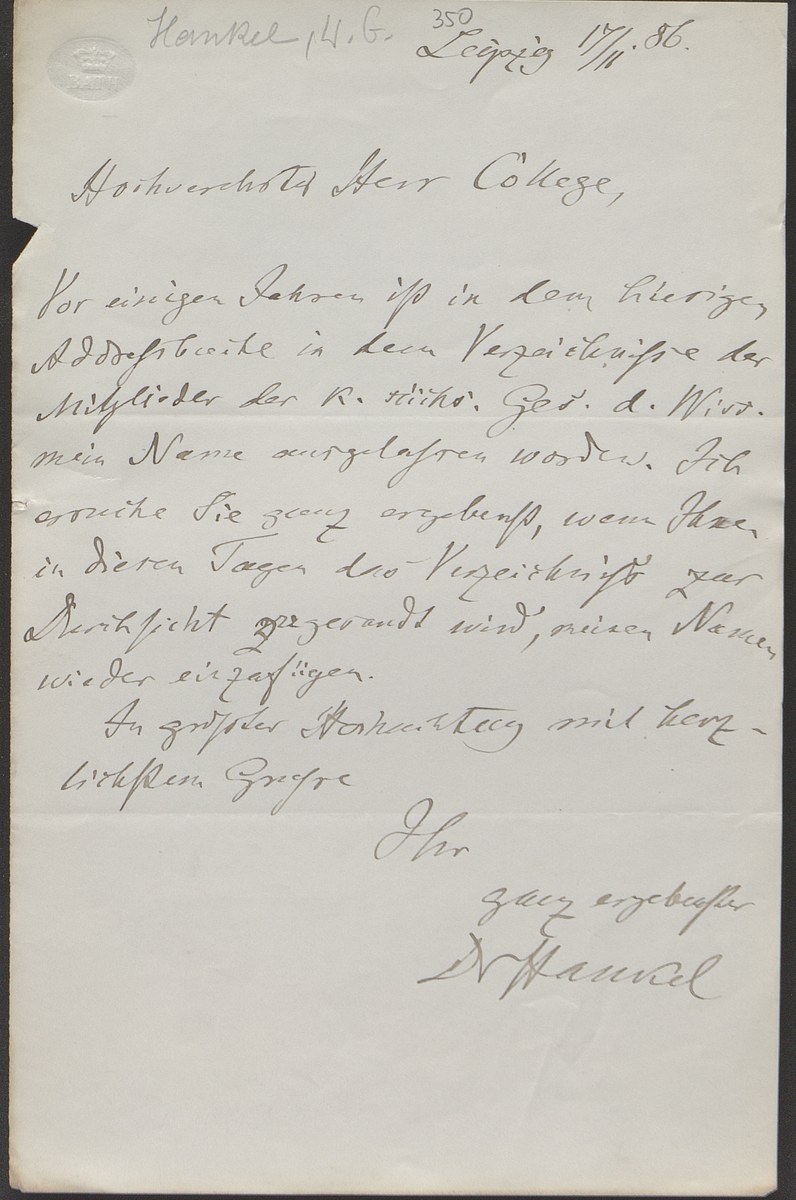 Hankel, W. G.
350
Leipzig 17/11. 86.
Hochverehrter Herr College,
Vor einigen Jahren ist in dem hiesigen
Addreßbuche in dem Verzeichnisse der
Mitglieder der K. sächs. Ges. d. Wiss.
mein Name ausgelassen worden. Ich
ersuche Sie ganz ergebenst, wenn Ihnen
in diesen Tagen das Verzeichniß zur
Durchsicht zugesandt wird, meinen Namen
wieder einzufügen.
In größter Hochachtung mit herz-
lichstem Grusse
Ihr
ganz ergebenster
Dr Hankel